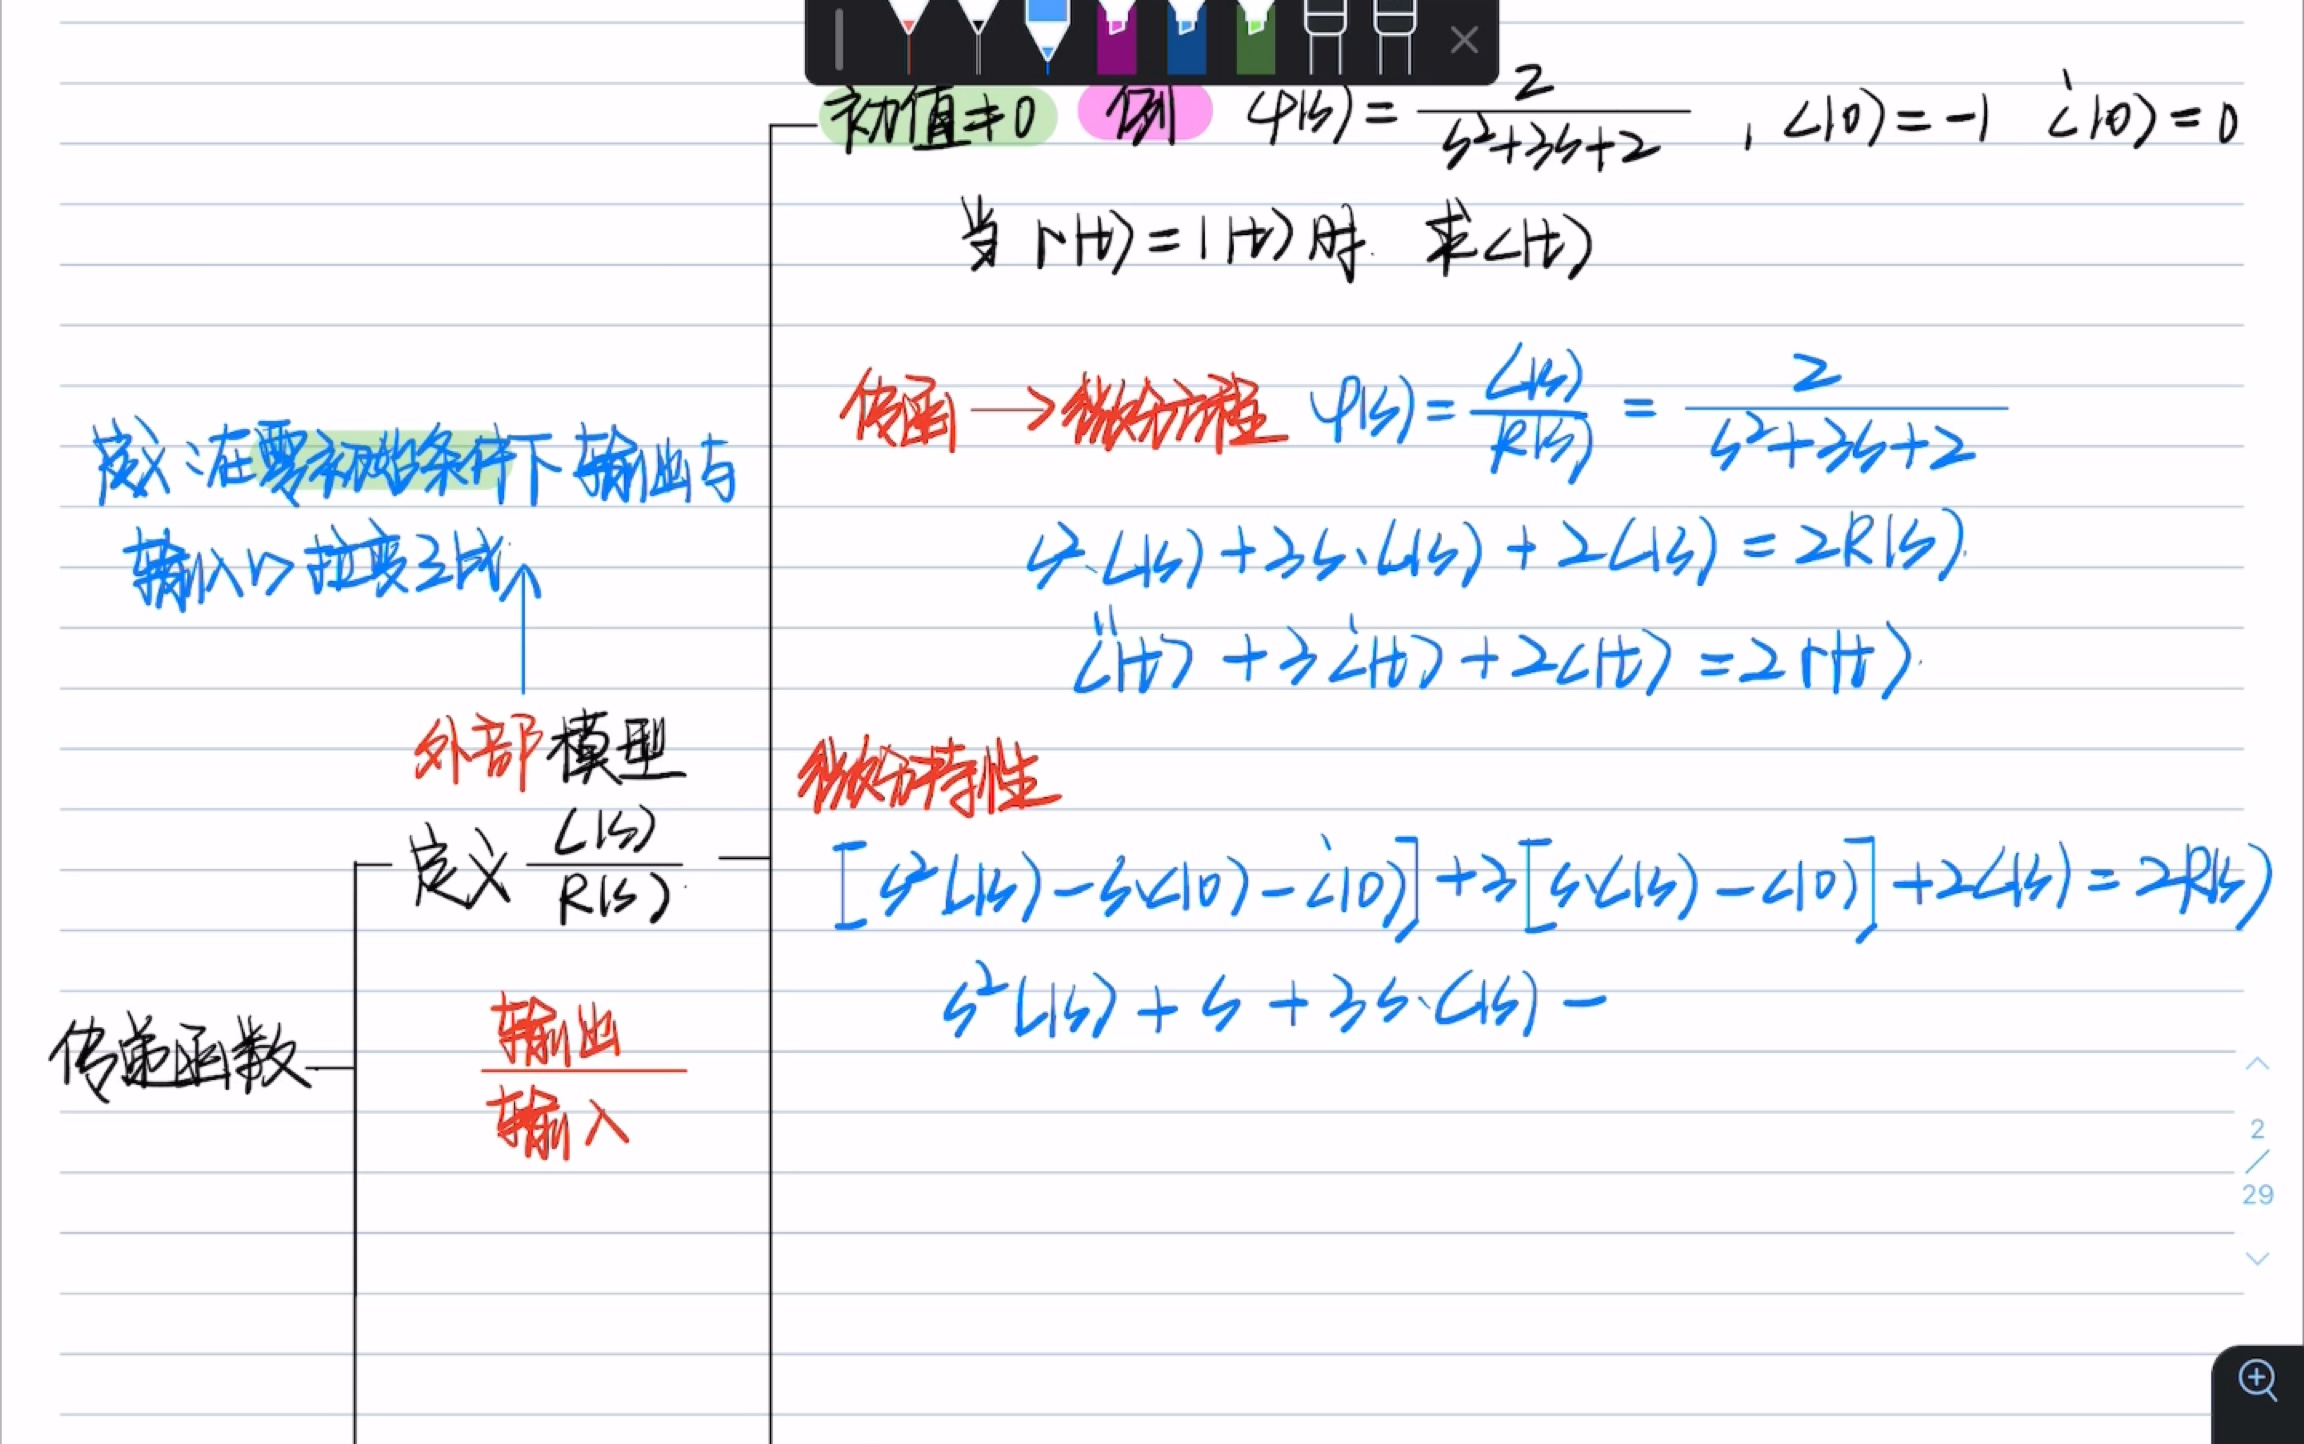 初值≠0 例 φ(s) = 2/(s²+3s+2) , c(0)=-1 ċ(0)=0
当 r(t)=1(t)时. 求c(t)
传函→微分方程 φ(s) = C(s)/R(s) = 2/(s²+3s+2)
s²·C(s)+3s·C(s)+2C(s)=2R(s).
c̈(t)+3ċ(t)+2c(t)=2r(t).
微分特性
[s²C(s)-s·c(0)-ċ(0)]+3[s·C(s)-c(0)]+2C(s)=2R(s)
s²C(s)+s+3s·C(s)-
定义:在零初始条件下输出与
输入的拉变之比.
外部模型
定义 C(s)/R(s).
输出
输入
传递函数
2
/
29